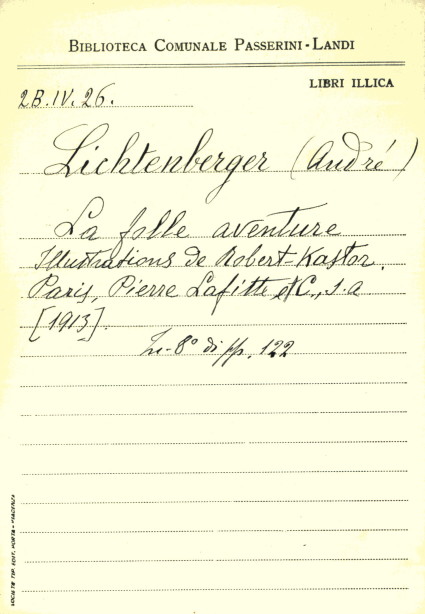 BIBLIOTECA COMUNALE PASSERINI-LANDI
LIBRI ILLICA
2B.IV.26.
Lichtenberger (André)
La folle aventure
Illustrations de Robert-Kastor.
Paris, Pierre Lafitte et C., s.a
[1913].
In-8° di pp. 122